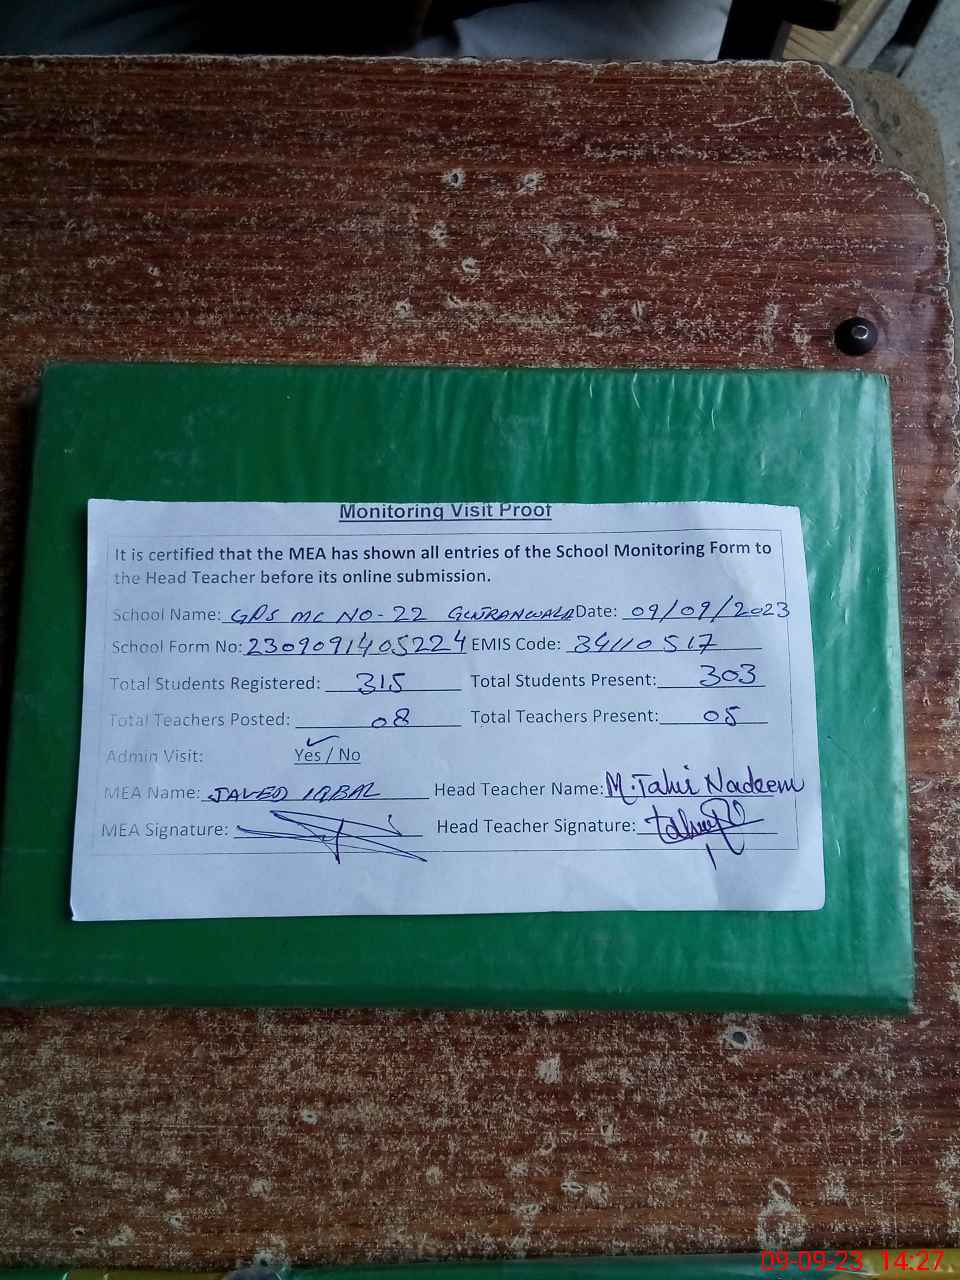 Monitoring Visit Proof
It is certified that the MEA has shown all entries of the School Monitoring Form to
the Head Teacher before its online submission.
School Name: GPS MC NO-22 GUJRANWALA Date: 09/09/2023
School Form No: 2309091405224 EMIS Code: 34110517
Total Students Registered: 315 Total Students Present: 303
Total Teachers Posted: 08 Total Teachers Present: 05
Admin Visit: Yes / No
MEA Name: JAVED IQBAL Head Teacher Name: M. Tahir Nadeem
MEA Signature: Head Teacher Signature:
09-09-23 14:27